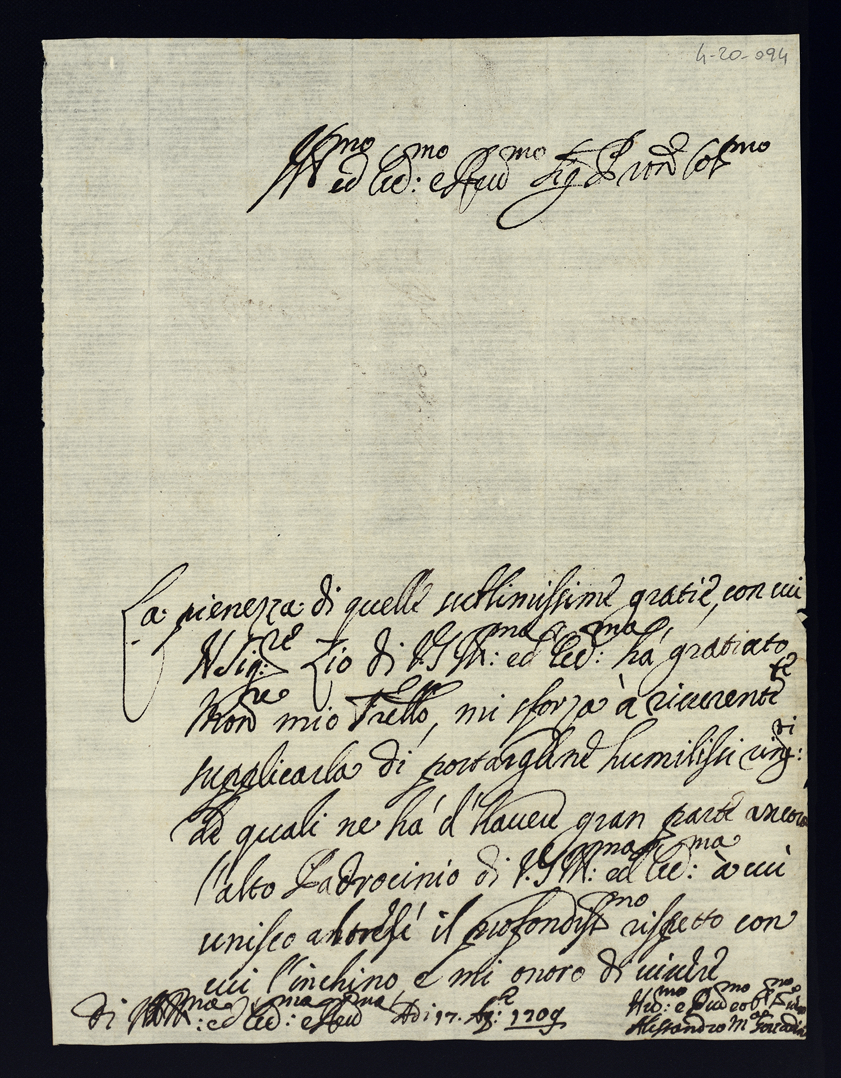 4-20-094
Ill.mo ed Ecc.mo e Reu.mo Sig.r P.ron Col.mo
La pienezza di quelle sublimissime gratie, con cui
Il Sig.re Zio di V.S Ill.ma ed Ecc.ma ha' gratiato
Mon.re mio Fr̃ello, mi sforza à riuerente
supplicarla di portargliene humilissi ring.di
de quali ne ha' d'hauere gran parte ancora
l'alto Padrocinio di V.S Ill.ma ed Ecc.ma à cui
unisco altresi' il profondiss.mo rispetto con
cui l'inchino, e mi onoro di uiuere
di V.S Ill.ma: ed Ecc.ma: e Reu.ma Adi 17. Ag: 1709
Alessandro M.a